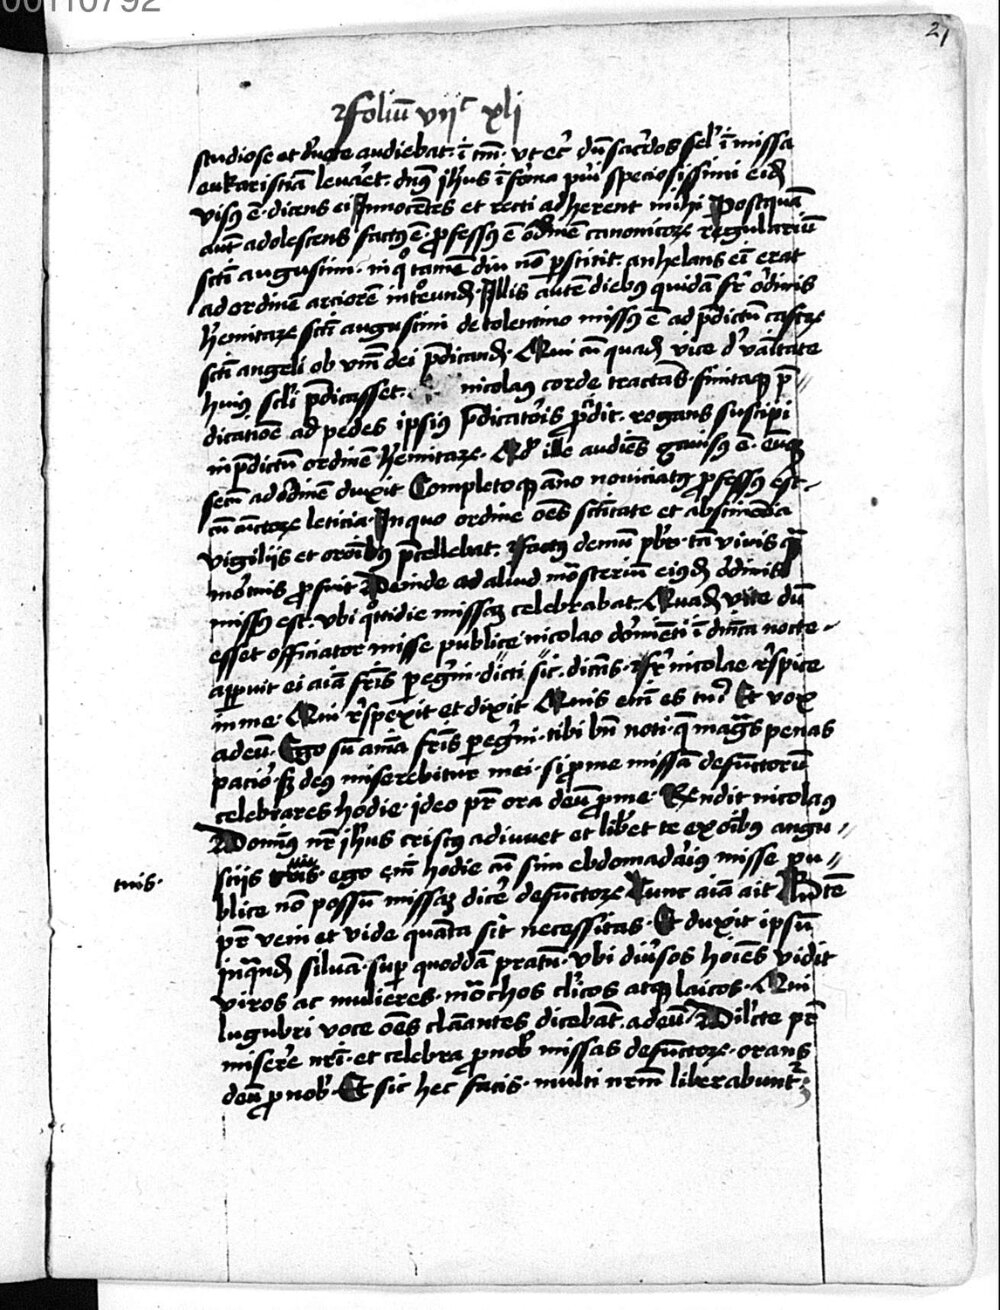 00110792
21
Foliū vijᶜ xlj
studiose et deuote audiebat. ī tm̄. vt eciā dū sacerdos sel̄ ī missa
eukaristiā leuaret. dn̄s ih̄us ī forma pueri speciosissimi eidē
visus ē. dicens ei Innocētes et recti adherent mihi Postquā
aut̄ adolescens factus ē. professus ē ordinē canonicorum regulariū
scti augustini. in qo tamē diu nō perstitit. anhelans eī erat
ad ordinē arciorē introeundi. Illis autē diebus quidā fr̄ ordinis
heremitarum scti augustini de tolentino missus ē ad p̄dictū castrum
scti angeli ob vm̄ dei p̄dicandū. Qui cū quadā vice de vanitate
huius secli p̄dicasset. nicolaus corde tractās. finitaque p̄
dicatiōe ad pedes ipsius p̄dicatoris prodit. rogans suscipi
in p̄dictū ordinē heremitarum. Qd̄ ille audiēs gauisus ē. eūque
secū ad ordinē duxit Completoque āno nouiciatus professus est
cū auctore leticia. In quo ordine oēs sctitate et abstinētia
vigiliis et orōibus p̄cellebat. Factus demū pbr̄. tā viuis quā
mortuis profuit. Deinde ad aliud mōsteriū eiusdē ordinis
missus est. vbi qottidie missas celebrabat. Quadā vice dū
esset officiator misse publice nicolao dormiēti ī dn̄ica nocte
apparuit ei aīa fr̄is peregrini. dicti sic. dicēs. fr̄ nicolae respice
in me. Qui respexit et dixit Quis enī es tu? Et vox
ad eū. Ego sū aīa fr̄is peregrini. tibi bn̄ noti. que magnas penas
pacior. sz deus miserebitur mei. si pro me missā defunctorū
celebrares hodie. ideo pr̄ ora deū pro me. Rendit nicolaus
Dominus nr̄ ih̄us cristus adiuuet et liberet te ex oībus angu
stiis tuis. ego em̄ hodie cū sim ebdomadarius misse pu
tuis.
blice nō possū missas dicere defunctorum Tunc aīa ait
pr̄ veni et vide quāta sit necessitas. Et duxit ipsū
in quandā siluā. super quoddā pratū. vbi diuersos hoīes vidit
viros ac mulieres. mōchos clericos atque laicos. Qui
lugubri voce oēs clāantes dicebāt. ad eū. Dilcte pr̄
miserere nr̄i. et celebra pro nob̄ missas defunctorum. orans
deū pro nob̄. Et sic hec facis. multi nr̄m liberabuntur